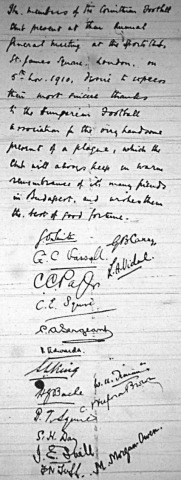 The members of the Corinthian Football
Club present at their Annual
General Meeting at the Sports Club,
St. James Square, London, on
5th Nov. 1910, desire to express
their most sincere thanks
to the Hungarian Football
Association for the very handsome
present of a plaque, which the
Club will always keep in warm
remembrance of its many friends
in Budapest, and wishes them
the best of good fortune.
G. C. Vassall
R. A. Vidal
C. E. Squire
E. A. Sargeant
Edwards
King
H. G. Bache
P. T. Squire
S. H. Day
J. E. Snell
M. Morgan-Owen
F. N. Tuff